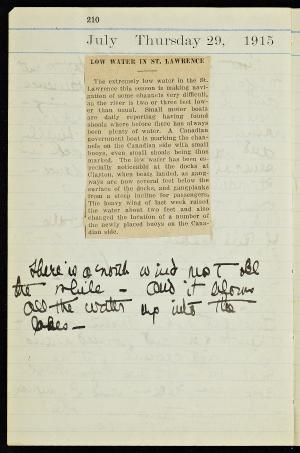 210
July Thursday 29, 1915
LOW WATER IN ST. LAWRENCE
The extremely low water in the St.
Lawrence this season is making navi-
gation of some channels very difficult,
as the river is two or three feet low-
er than usual. Small motor boats
are daily reporting having found
shoals where before there has always
been plenty of water. A Canadian
government boat is marking the chan-
nels on the Canadian side with small
buoys, even small shoals being thus
marked. The low water has been es-
pecially noticeable at the docks at
Clayton, when boats landed, as gang-
ways are now several feet below the
surface of the docks, and gangplanks
form a steep incline for passengers.
The heavy wing of last week raised
the water about two feet and also
changed the location of a number of
the newly placed buoys on the Cana-
dian side.
There is a north wind most all
the while – and it blows
all the water up into the
lakes –